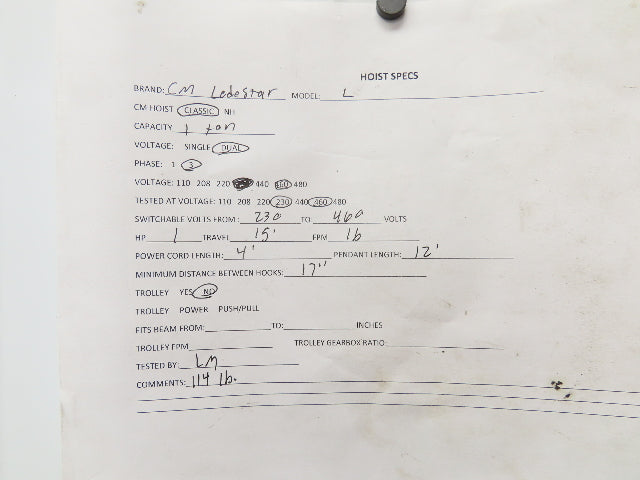 HOIST SPECS
BRAND: CM Lodestar MODEL: L
CM HOIST CLASSIC NH
CAPACITY 1 ton
VOLTAGE: SINGLE DUAL
PHASE: 1 3
VOLTAGE: 110 208 220 440 460 480
TESTED AT VOLTAGE: 110 208 220 230 440 460 480
SWITCHABLE VOLTS FROM: 230 TO: 460 VOLTS
HP 1 TRAVEL 15' FPM 16
POWER CORD LENGTH: 4' PENDANT LENGTH: 12'
MINIMUM DISTANCE BETWEEN HOOKS: 17"
TROLLEY YES NO
TROLLEY POWER PUSH/PULL
FITS BEAM FROM: TO: INCHES
TROLLEY FPM TROLLEY GEARBOX RATIO:
TESTED BY: LM
COMMENTS: 114 lb.